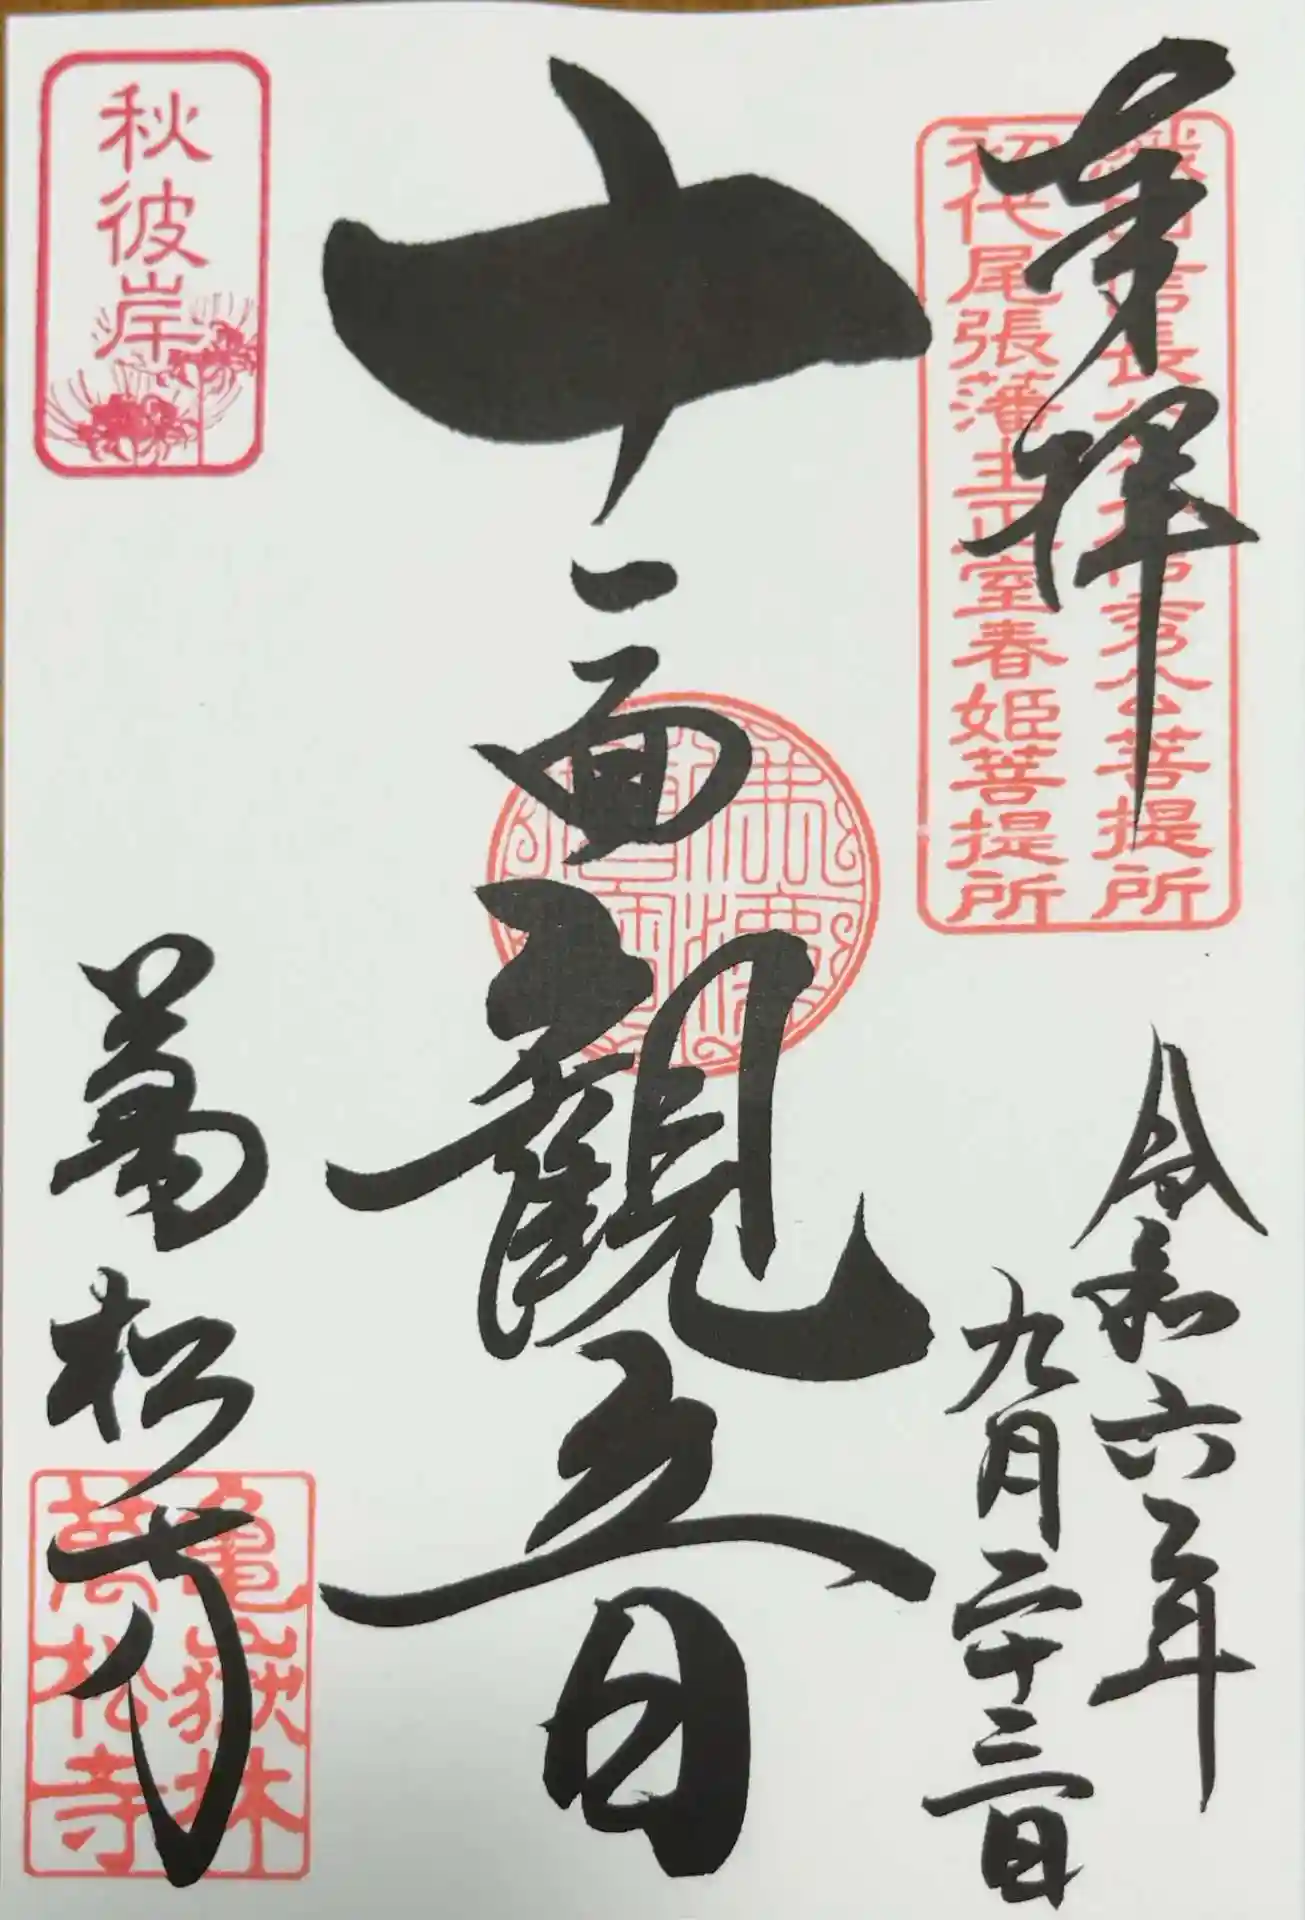 奉拝
織田信長公父信秀公菩提所
初代尾張藩主正室春姫菩提所
令和六年
九月二十三日
十一面観音
秋彼岸
萬松寺
亀嶽林
萬松寺